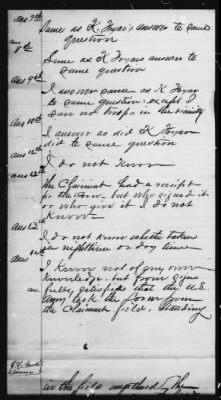 Ans 7th Same as K. Fryar's answer to same
question
Ans 8th Same as K Fryars answer to
same question
Ans 9th I answer same as K Fryar
to same question except I
saw no troops in the vicinity
Ans 10th I answer as did K Fryar
did to same question
Ans 11th I do not Know
The Claimant had a receipt
for the corn but who signed it
or who give it I do not
Know
Ans 12 I do not know whether taken
in nighttime or day time
Ans I Know not of my own
Knowledge but from
fully satisfied that the U.S.
Army took the from
the Claimant field, standing
in the field ungathered The